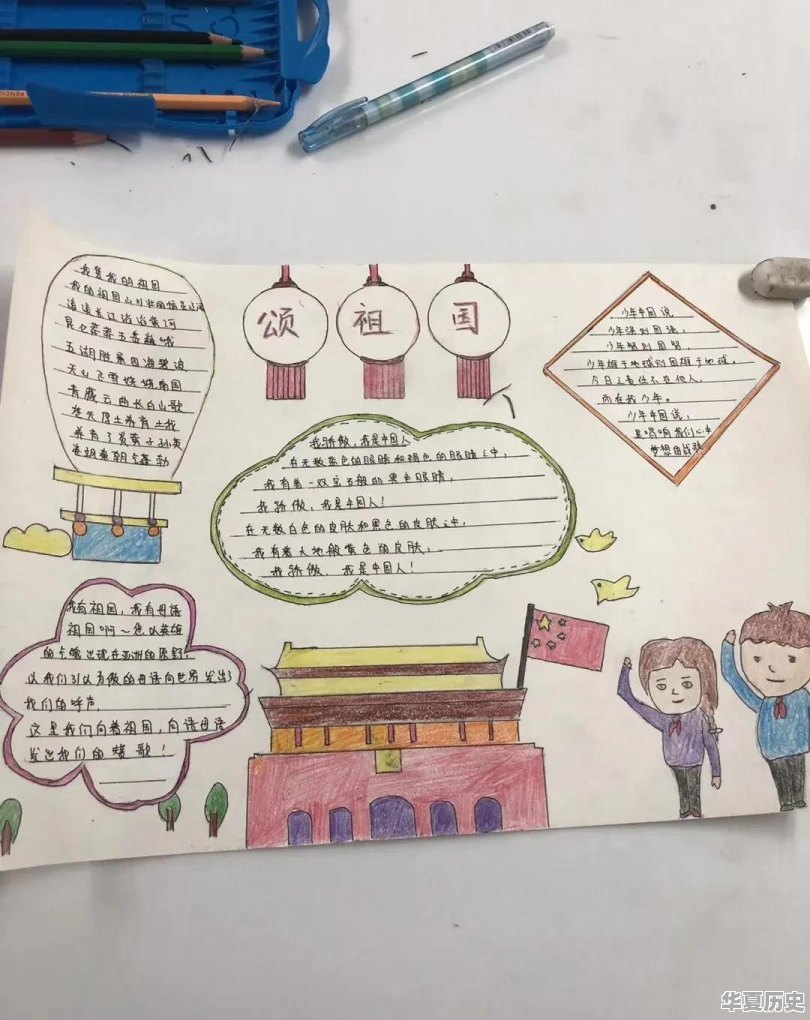 我爱我的祖国
我的祖国山川壮丽
滚滚长江滔滔黄河
五湖胜景四海碧波
颂祖国
我骄傲,我是中国人
在无数蓝色的眼睛和褐色的眼睛之中,
我有着一双宝石般的黑色眼睛,
我骄傲,我是中国人!
在无数白色的皮肤和黑色的皮肤之中,
我有着大地般黄色的皮肤,
我骄傲,我是中国人!
少年中国说
少年强则国强,
少年智则国智,
少年雄于地球则国雄于地球。
今日之责任不在他人,
而在我少年。
少年中国说,
是唱响我们心中
梦想的战鼓
我有祖国,我有母语
祖国啊~您以英雄
的气魄出现在亚洲的原野,
以我们引以为傲的母语向世界发出了
我们的呼声
这是我们向着祖国,向语母语
发出我们的赞歌!
华夏历史